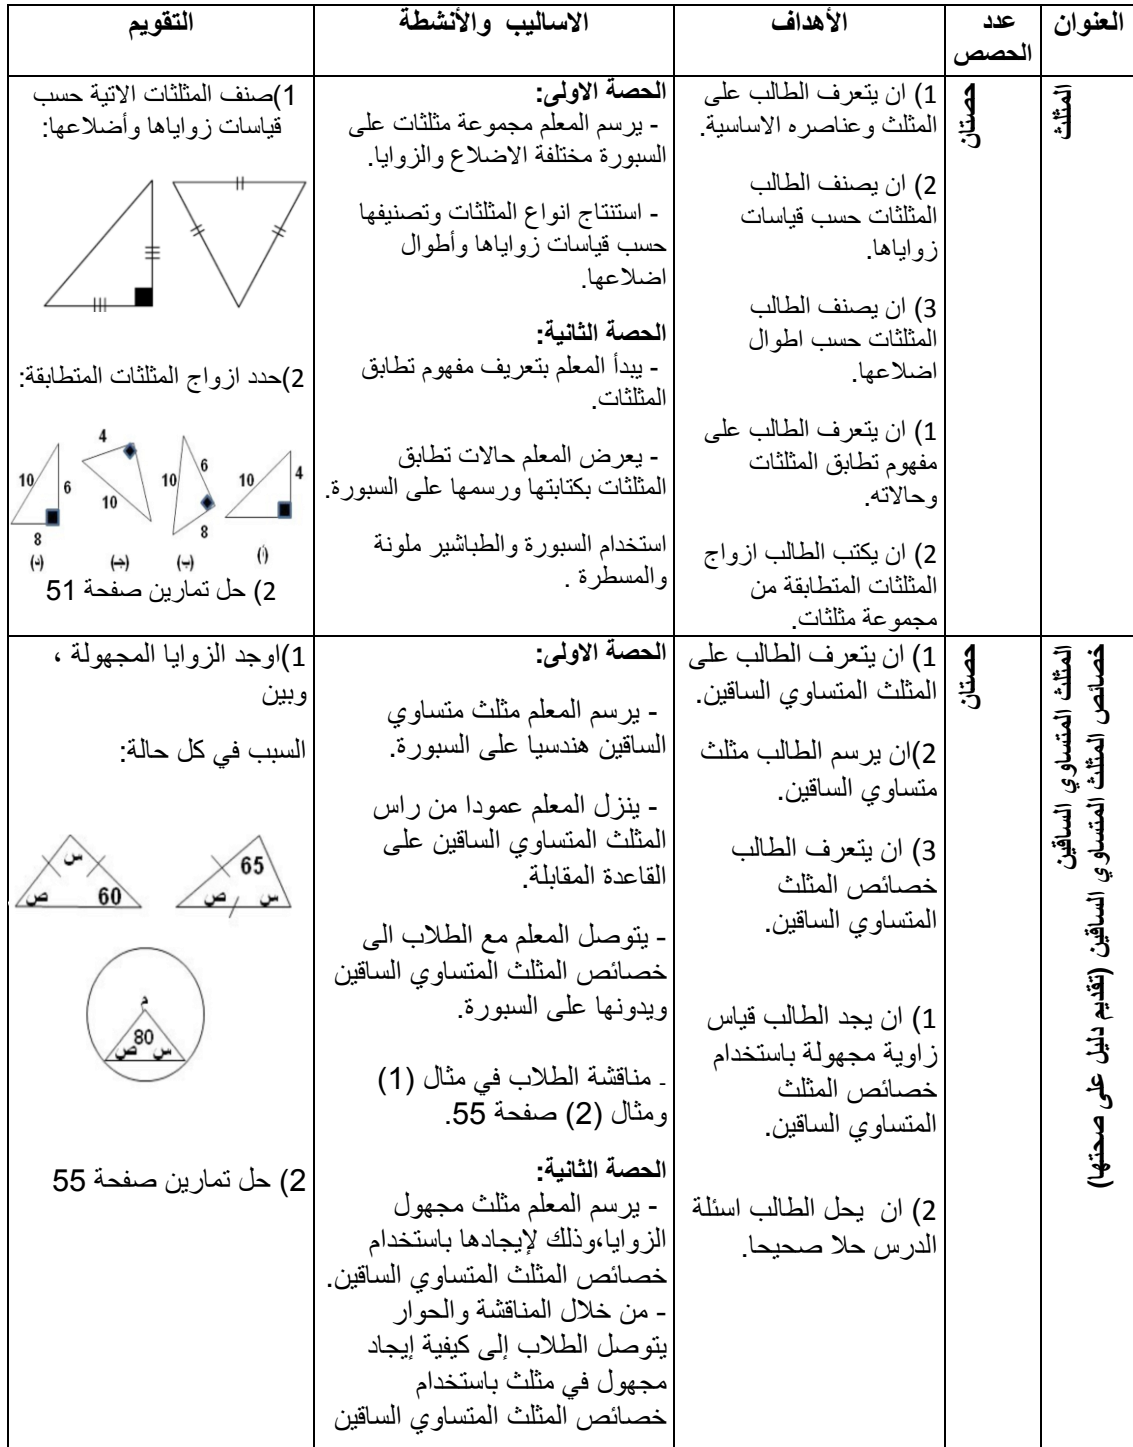 العنوان
عدد
الحصص
الأهداف
الاساليب والأنشطة
التقويم
المثلث
حصتان
1) ان يتعرف الطالب على
المثلث وعناصره الاساسية.
2) ان يصنف الطالب
المثلثات حسب قياسات
زواياها.
3) ان يصنف الطالب
المثلثات حسب اطوال
اضلاعها.
1) ان يتعرف الطالب على
مفهوم تطابق المثلثات
وحالاته.
2) ان يكتب الطالب ازواج
المثلثات المتطابقة من
مجموعة مثلثات.
الحصة الاولى:
- يرسم المعلم مجموعة مثلثات على
السبورة مختلفة الاضلاع والزوايا.
- استنتاج انواع المثلثات وتصنيفها
حسب قياسات زواياها وأطوال
اضلاعها.
الحصة الثانية:
- يبدأ المعلم بتعريف مفهوم تطابق
المثلثات.
- يعرض المعلم حالات تطابق
المثلثات بكتابتها ورسمها على السبورة.
استخدام السبورة والطباشير ملونة
والمسطرة .
1)صنف المثلثات الاتية حسب
قياسات زواياها وأضلاعها:
2)حدد ازواج المثلثات المتطابقة:
10 4
(أ)
10 6 8
(ب)
4 10
(جـ)
10 6 8
(د)
2) حل تمارين صفحة 51
المثلث المتساوي الساقين
خصائص المثلث المتساوي الساقين (تقديم دليل على صحتها)
حصتان
1) ان يتعرف الطالب على
المثلث المتساوي الساقين.
2)ان يرسم الطالب مثلث
متساوي الساقين.
3) ان يتعرف الطالب
خصائص المثلث
المتساوي الساقين.
1) ان يجد الطالب قياس
زاوية مجهولة باستخدام
خصائص المثلث
المتساوي الساقين.
2) ان يحل الطالب اسئلة
الدرس حلا صحيحا.
الحصة الاولى:
- يرسم المعلم مثلث متساوي
الساقين هندسيا على السبورة.
- ينزل المعلم عمودا من راس
المثلث المتساوي الساقين على
القاعدة المقابلة.
- يتوصل المعلم مع الطلاب الى
خصائص المثلث المتساوي الساقين
ويدونها على السبورة.
- مناقشة الطلاب في مثال (1)
ومثال (2) صفحة 55.
الحصة الثانية:
- يرسم المعلم مثلث مجهول
الزوايا،وذلك لإيجادها باستخدام
خصائص المثلث المتساوي الساقين.
- من خلال المناقشة والحوار
يتوصل الطلاب إلى كيفية إيجاد
مجهول في مثلث باستخدام
خصائص المثلث المتساوي الساقين
1)اوجد الزوايا المجهولة ،
وبين
السبب في كل حالة:
65
س ص
س
60 ص
م
80
س ص
2) حل تمارين صفحة 55